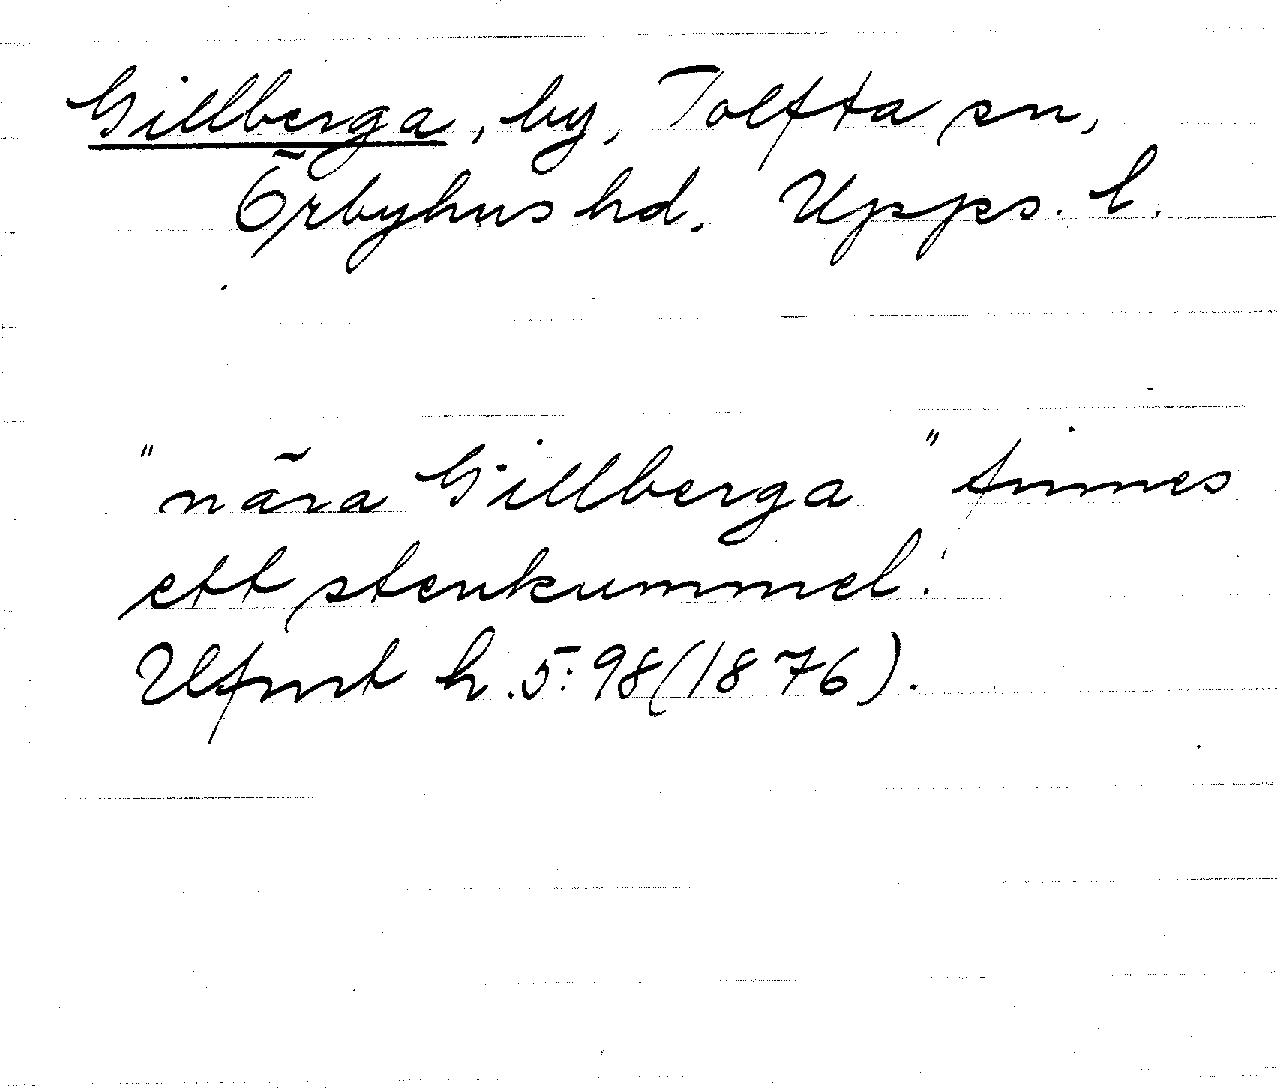 Gillberga, by, Tolfta sn,
Örbyhus hd. Upps. l.
"nära Gillberga" finnes
ett stenkummel.
Ufmt h. 5:98 (1876).